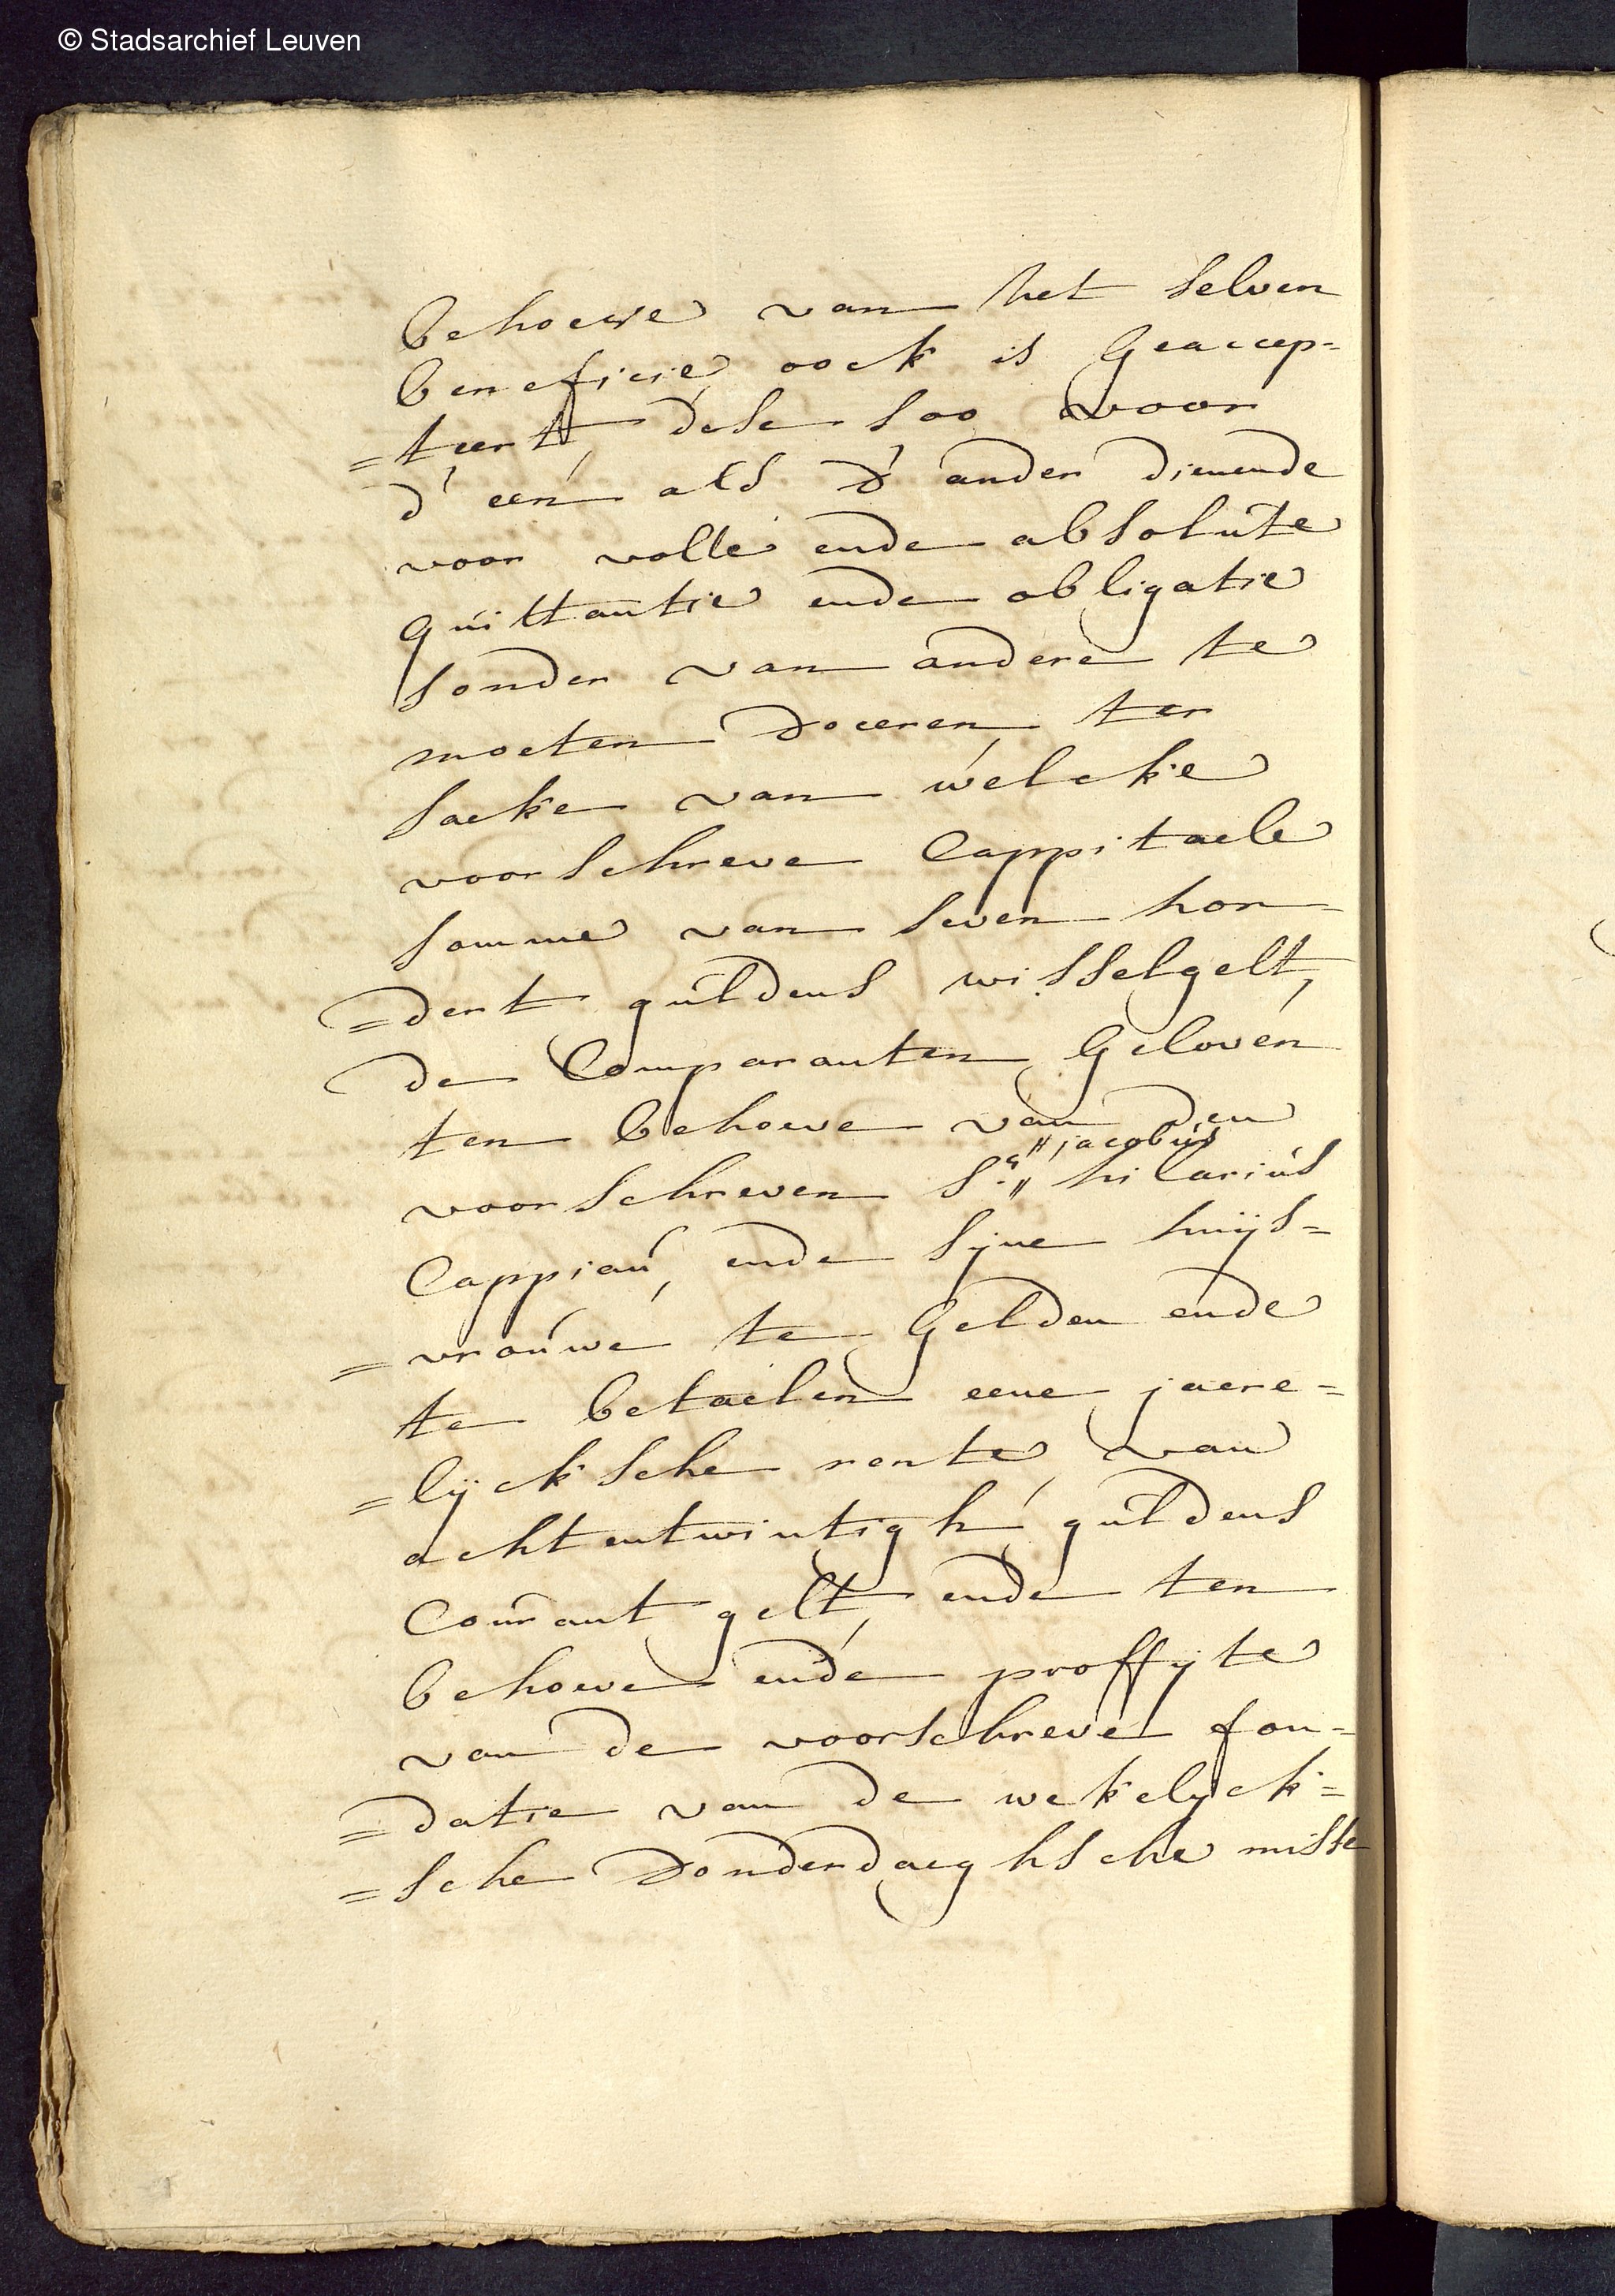 © Stadsarchief Leuven
behoeve van het selven
beneficie oock is geaccep=
=teert, dese soo voor
d' een als d' ander dienende
voor volle ende absolute
quittantie ende obligatie
sonder van andere te
moeten doceren, ter
saeke van welcke
voorschreve Cappitaele
somme van seven hon=
=dert guldens wisselgelt,
de Comparanten geloven
ten behoeve van den
voorschreven Sr. "jacobus
" hilarius
Cappiau, ende syne huijs=
=vrouwe te gelden ende
te betaelen eene jaere=
=lycksche rente van
achtentwintigh guldens
Courant gelt, ende ten
behoeve ende proffyte
van de voorschreve fon=
=datie van de wekelyck=
=sche donderdaeghsche misse